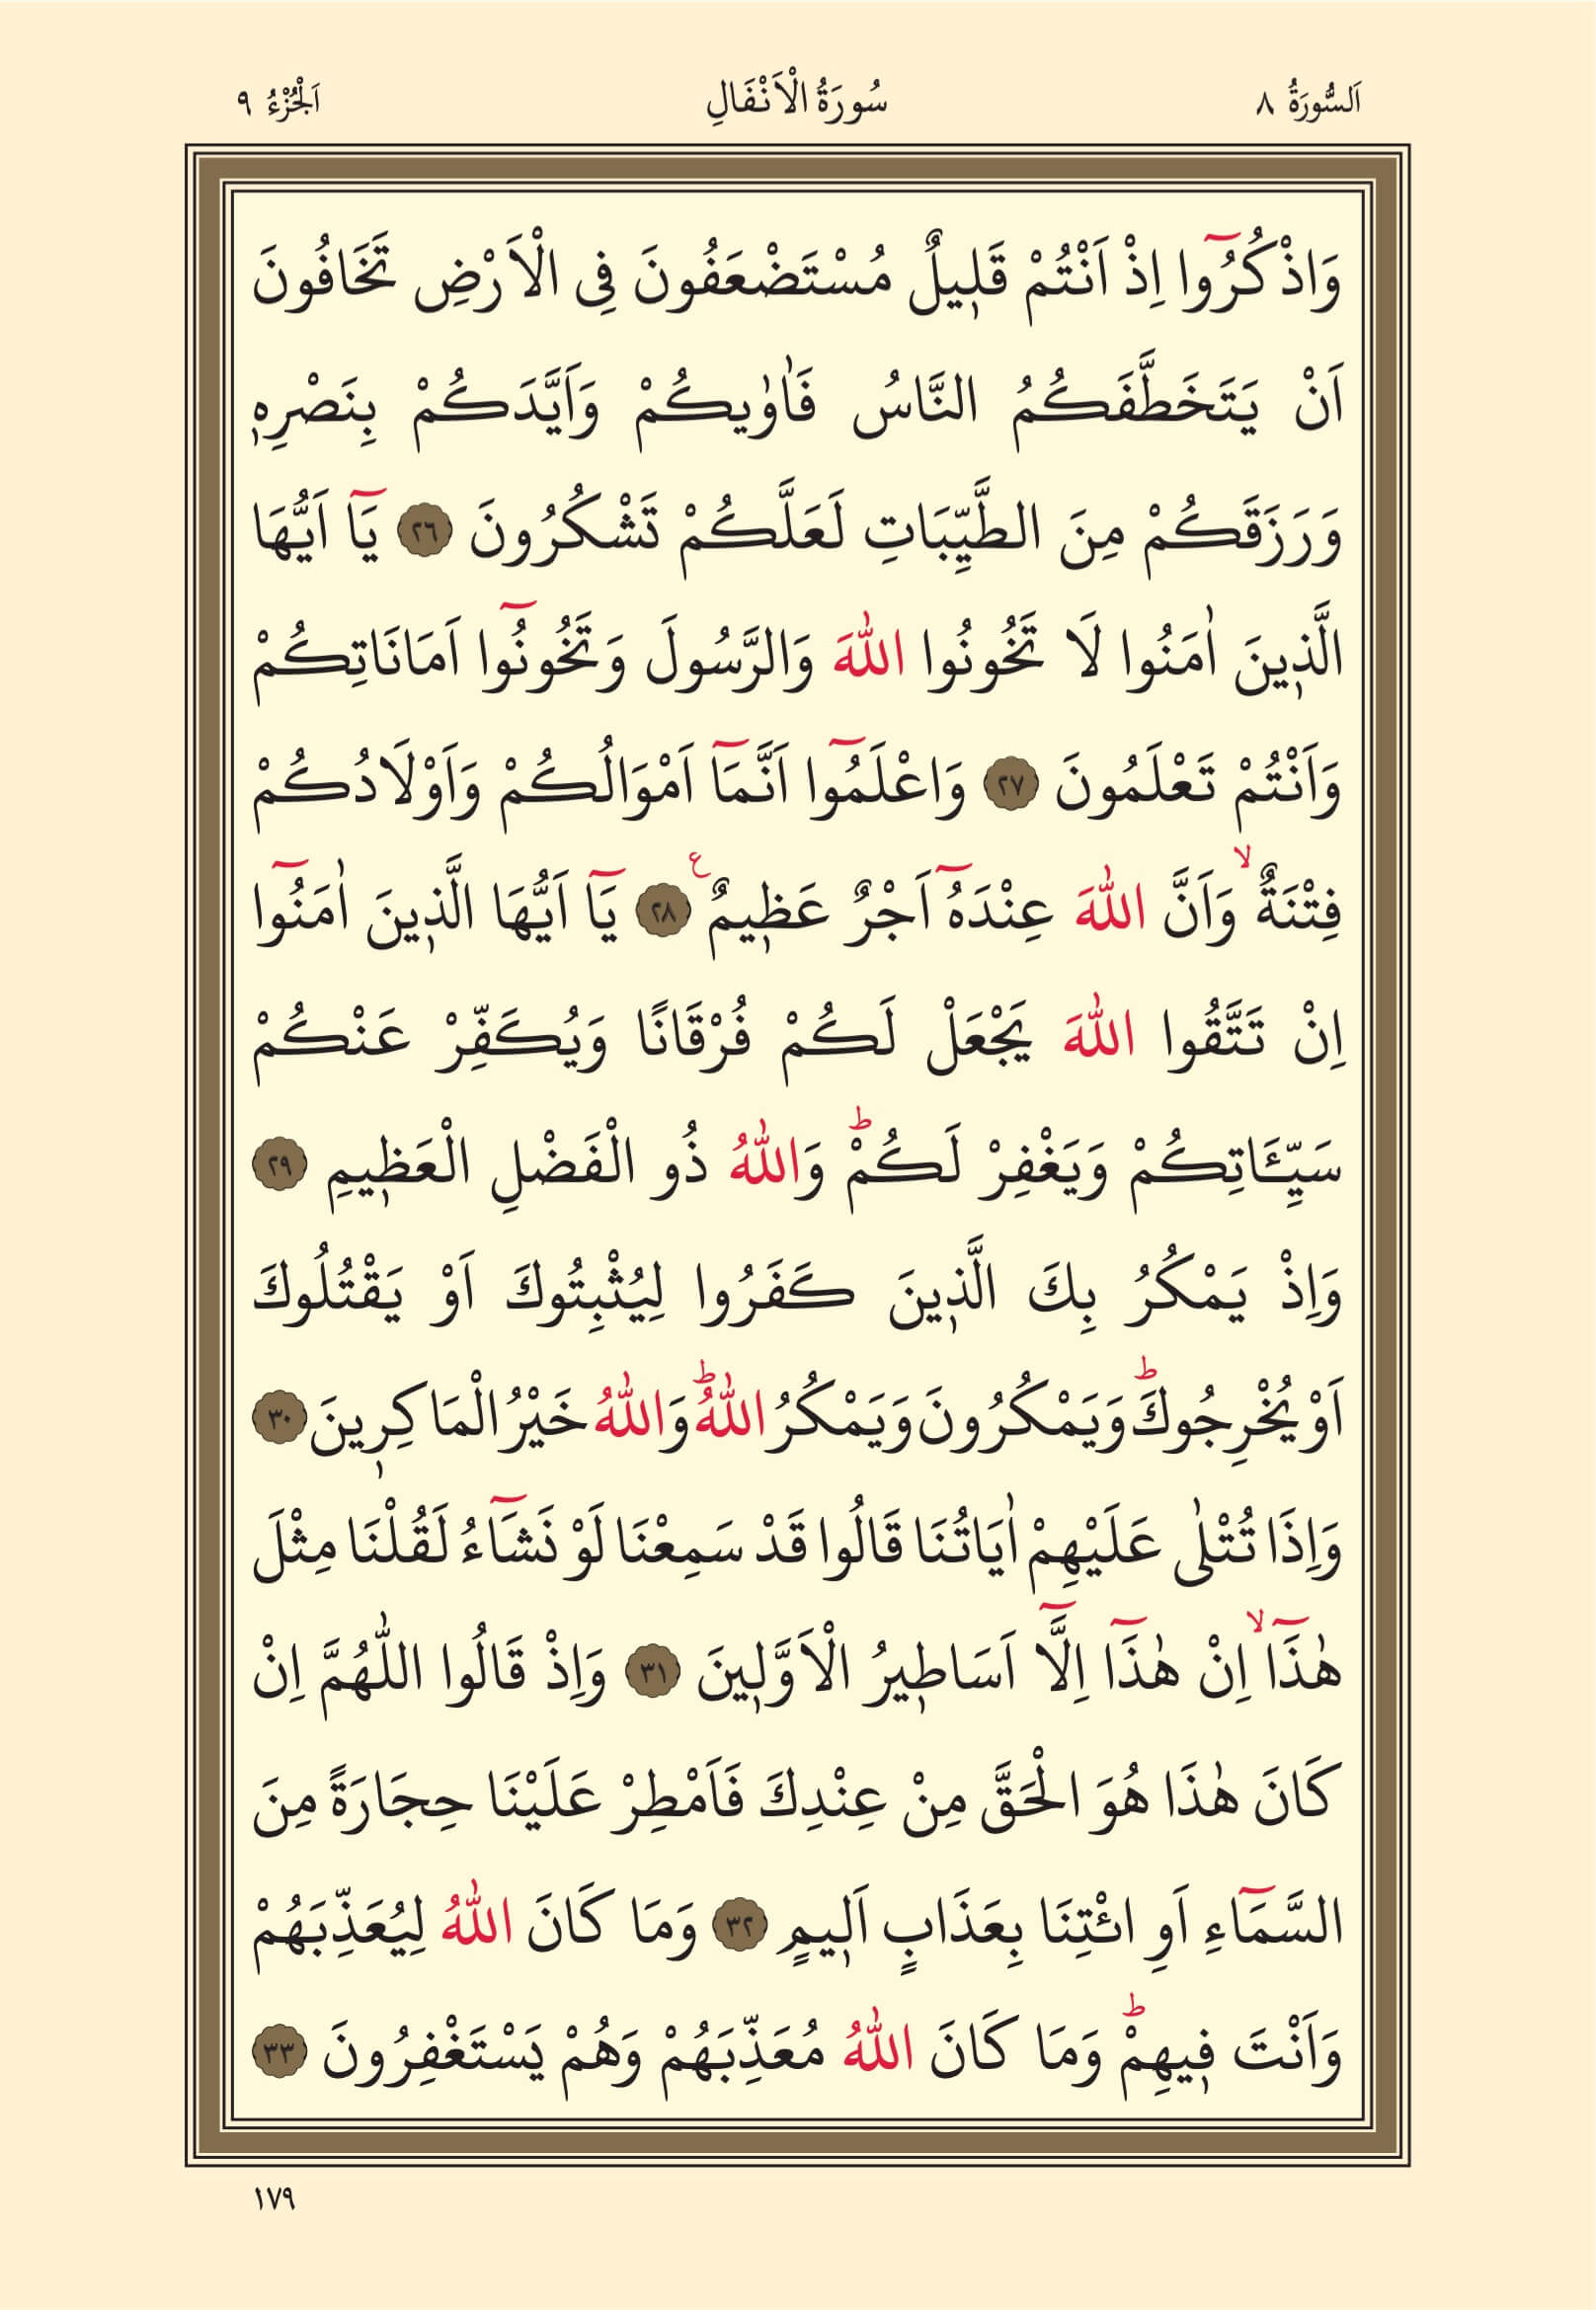 اَلسُّورَةُ ٨ سُورَةُ الْاَنْفَالِ اَلْجُزْءُ ٩
وَاذْكُرُٓوا اِذْ اَنْتُمْ قَل۪يلٌ مُسْتَضْعَفُونَ فِى الْاَرْضِ تَخَافُونَ
اَنْ يَتَخَطَّفَكُمُ النَّاسُ فَاٰوٰيكُمْ وَاَيَّدَكُمْ بِنَصْرِه۪
وَرَزَقَكُمْ مِنَ الطَّيِّبَاتِ لَعَلَّكُمْ تَشْكُرُونَ ٢٦ يَٓا اَيُّهَا
الَّذ۪ينَ اٰمَنُوا لَا تَخُونُوا اللّٰهَ وَالرَّسُولَ وَتَخُونُٓوا اَمَانَاتِكُمْ
وَاَنْتُمْ تَعْلَمُونَ ٢٧ وَاعْلَمُٓوا اَنَّمَٓا اَمْوَالُكُمْ وَاَوْلَادُكُمْ
فِتْنَةٌۙ وَاَنَّ اللّٰهَ عِنْدَهُٓ اَجْرٌ عَظ۪يمٌ ع ٢٨ يَٓا اَيُّهَا الَّذ۪ينَ اٰمَنُٓوا
اِنْ تَتَّقُوا اللّٰهَ يَجْعَلْ لَكُمْ فُرْقَانًا وَيُكَفِّرْ عَنْكُمْ
سَيِّـَٔاتِكُمْ وَيَغْفِرْ لَكُمْؕ وَاللّٰهُ ذُو الْفَضْلِ الْعَظ۪يمِ ٢٩
وَاِذْ يَمْكُرُ بِكَ الَّذ۪ينَ كَفَرُوا لِيُثْبِتُوكَ اَوْ يَقْتُلُوكَ
اَوْ يُخْرِجُوكَؕ وَيَمْكُرُونَ وَيَمْكُرُ اللّٰهُؕ وَاللّٰهُ خَيْرُ الْمَاكِر۪ينَ ٣٠
وَاِذَا تُتْلٰى عَلَيْهِمْ اٰيَاتُنَا قَالُوا قَدْ سَمِعْنَا لَوْ نَشَٓاءُ لَقُلْنَا مِثْلَ
هٰذَٓاۙ اِنْ هٰذَٓا اِلَّٓا اَسَاط۪يرُ الْاَوَّل۪ينَ ٣١ وَاِذْ قَالُوا اللّٰهُمَّ اِنْ
كَانَ هٰذَا هُوَ الْحَقَّ مِنْ عِنْدِكَ فَاَمْطِرْ عَلَيْنَا حِجَارَةً مِنَ
السَّمَٓاءِ اَوِ ائْتِنَا بِعَذَابٍ اَل۪يمٍ ٣٢ وَمَا كَانَ اللّٰهُ لِيُعَذِّبَهُمْ
وَاَنْتَ ف۪يهِمْؕ وَمَا كَانَ اللّٰهُ مُعَذِّبَهُمْ وَهُمْ يَسْتَغْفِرُونَ ٣٣
١٧٩